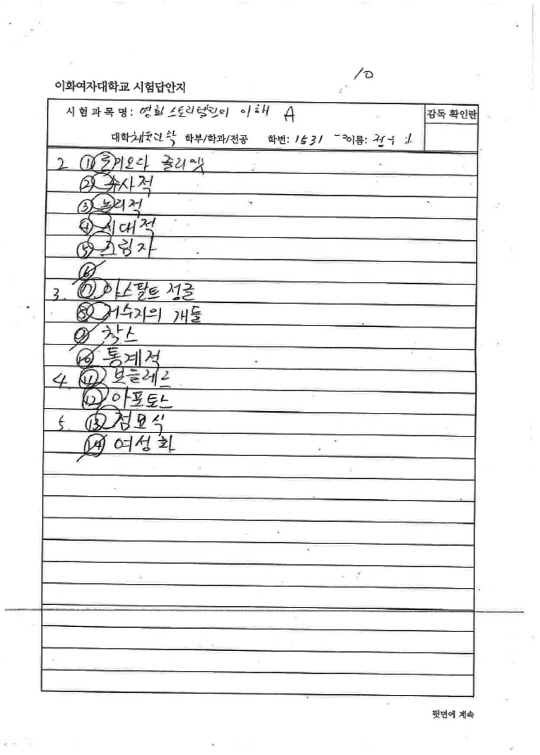 10
이화여자대학교 시험답안지
시험과목명: 영화스토리텔링의 이해 A
감독 확인란
대학 체육과학 학부/학과/전공 학번: 1531 이름:
2 ① 돌이오다 줄리엣
② 수사적
③ 논리적
④ 시대적
⑤ 그림자
⑥
3. ⑦ 아스팔트 정글
⑧ 저수지의 개들
⑨ 찰스
⑩ 통계적
4. ⑪ 보들레르
⑫ 아포토스
5. ⑬ 점묘식
⑭ 여성화
뒷면에 계속